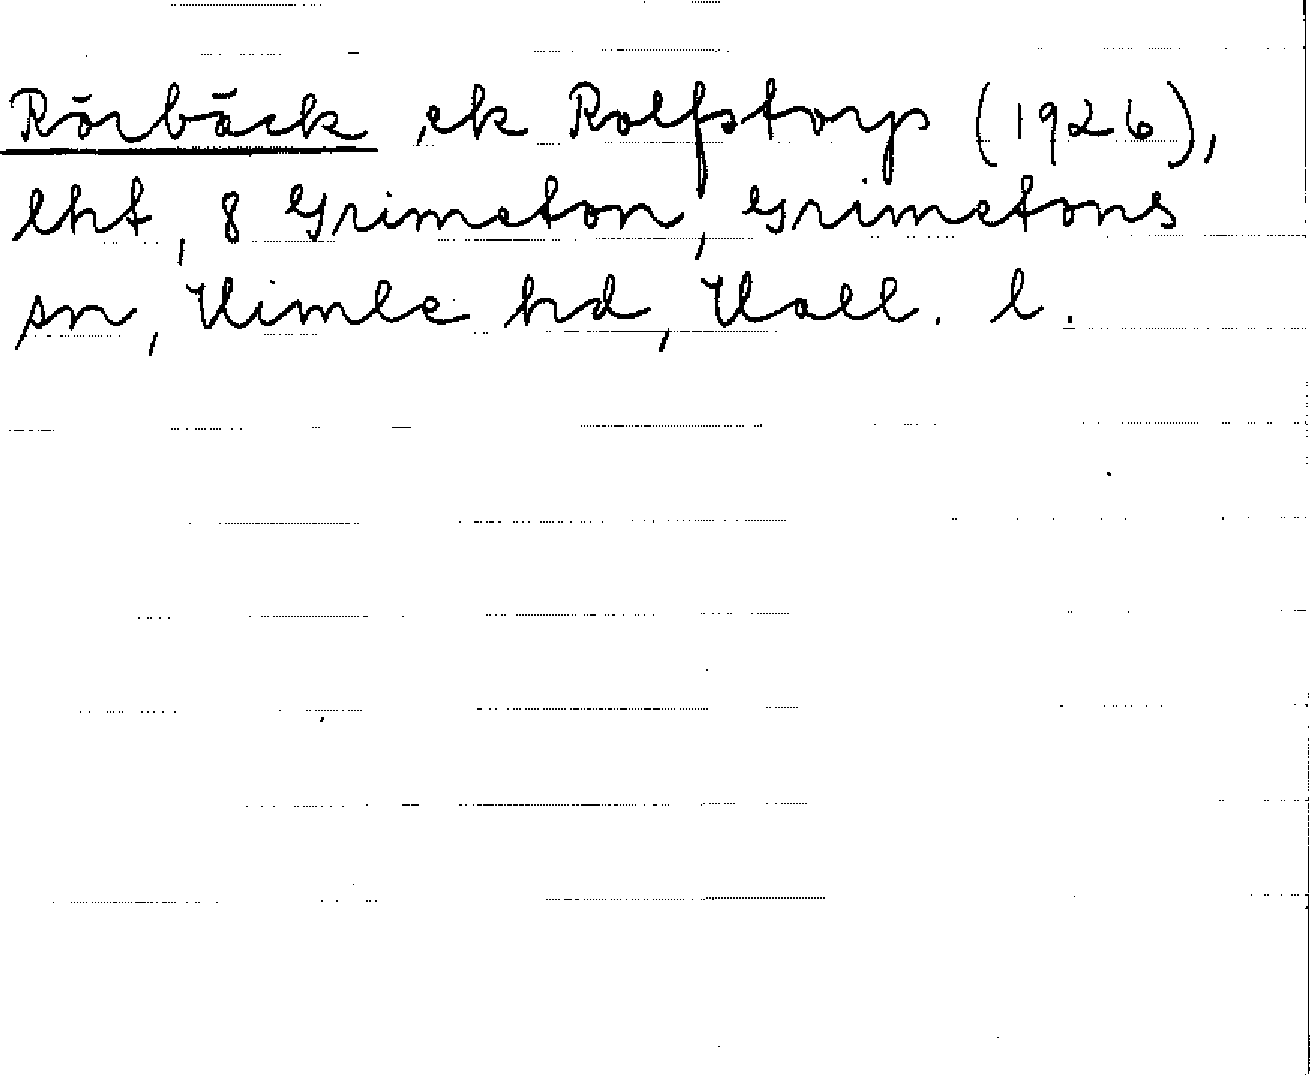 Rörbäck, ek Rolfstorp (1926),
lht, 8 Grimeton, Grimetons
sn, Himle hd, Hall. l.